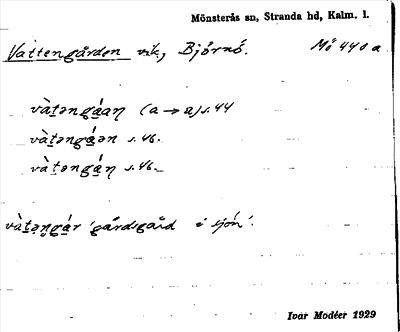 Mönsterås sn, Stranda hd, Kalm. l.
Vattengården vik, Björnö. Mö 440 a
vàtəngáaṇ (a → a) s. 44
vàtəngáən s. 46.
vàtəngáṇ s. 46.
vàtəṇgár 'gårdsgård i sjön'.
Ivar Modéer 1929